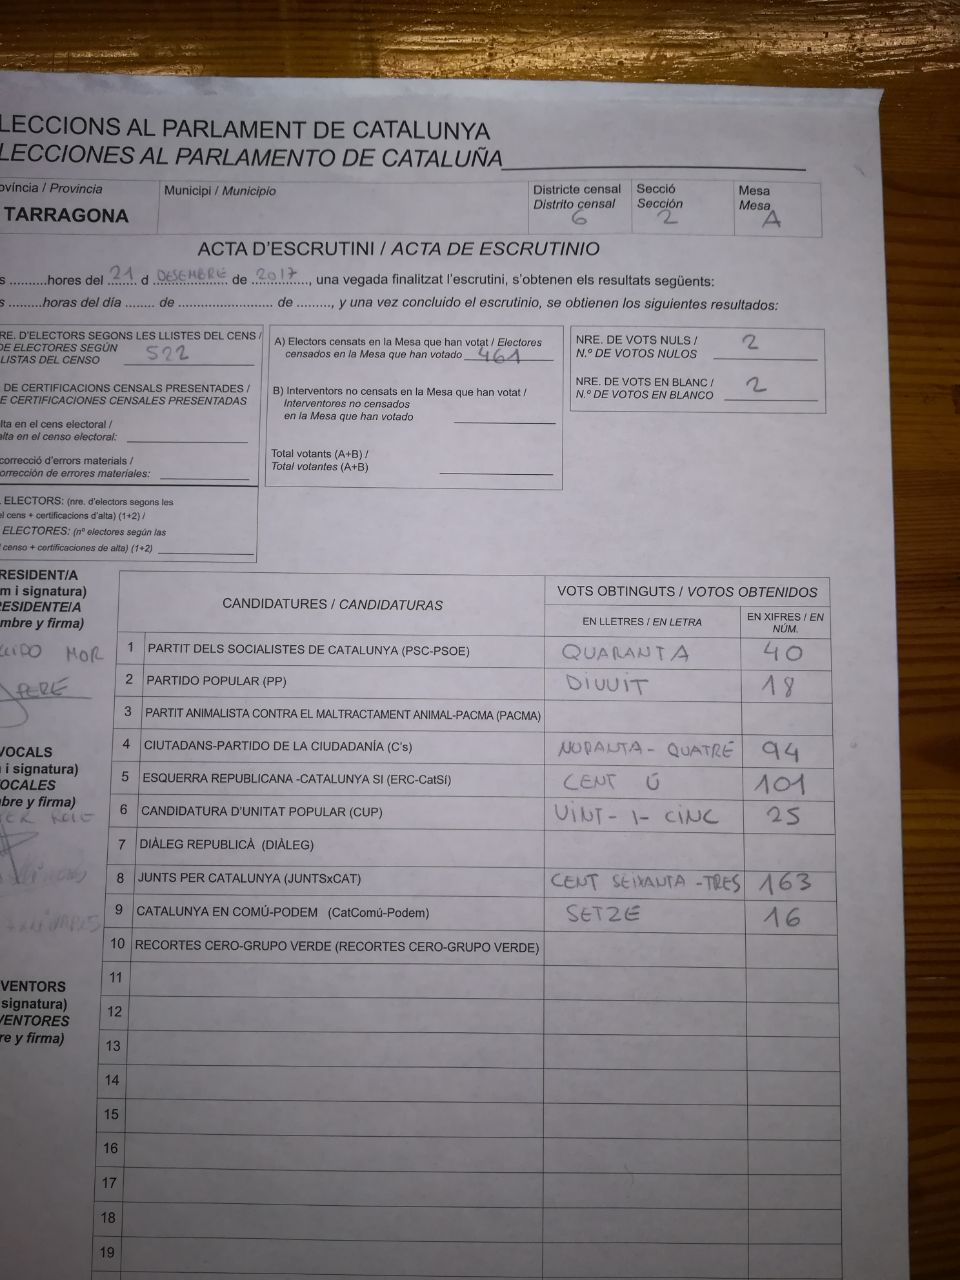 LECCIONS AL PARLAMENT DE CATALUNYA
LECCIONES AL PARLAMENTO DE CATALUÑA
ovíncia / Provincia
TARRAGONA
Municipi / Municipio
Districte censal
Distrito censal
6
Secció
Sección
2
Mesa
Mesa
A
ACTA D'ESCRUTINI / ACTA DE ESCRUTINIO
s ..........hores del 21 d DESEMBRE de 2017, una vegada finalitzat l'escrutini, s'obtenen els resultats següents:
s .........horas del día ........ de ......................... de ........., y una vez concluido el escrutinio, se obtienen los siguientes resultados:
RE. D'ELECTORS SEGONS LES LLISTES DEL CENS /
DE ELECTORES SEGÚN
LISTAS DEL CENSO 522
DE CERTIFICACIONS CENSALS PRESENTADES /
E CERTIFICACIONES CENSALES PRESENTADAS
lta en el cens electoral /
alta en el censo electoral:
correcció d'errors materials /
orrección de errores materiales:
ELECTORS: (nre. d'electors segons les
el cens + certificacions d'alta) (1+2) /
ELECTORES: (nº electores según las
censo + certificaciones de alta) (1+2)
A) Electors censats en la Mesa que han votat / Electores
censados en la Mesa que han votado 461
B) Interventors no censats en la Mesa que han votat /
Interventores no censados
en la Mesa que han votado
Total votants (A+B) /
Total votantes (A+B)
NRE. DE VOTS NULS /
N.º DE VOTOS NULOS 2
NRE. DE VOTS EN BLANC /
N.º DE VOTOS EN BLANCO 2
RESIDENT/A
m i signatura)
RESIDENTE/A
mbre y firma)
MOR
PERE
VOCALS
i signatura)
OCALES
bre y firma)
VENTORS
signatura)
VENTORES
re y firma)
CANDIDATURES / CANDIDATURAS
VOTS OBTINGUTS / VOTOS OBTENIDOS
EN LLETRES / EN LETRA
EN XIFRES / EN
NÚM.
1 PARTIT DELS SOCIALISTES DE CATALUNYA (PSC-PSOE) QUARANTA 40
2 PARTIDO POPULAR (PP) DIVUIT 18
3 PARTIT ANIMALISTA CONTRA EL MALTRACTAMENT ANIMAL-PACMA (PACMA)
4 CIUTADANS-PARTIDO DE LA CIUDADANÍA (C's) NORANTA-QUATRE 94
5 ESQUERRA REPUBLICANA -CATALUNYA SI (ERC-CatSí) CENT Ú 101
6 CANDIDATURA D'UNITAT POPULAR (CUP) VINT-I-CINC 25
7 DIÀLEG REPUBLICÀ (DIÀLEG)
8 JUNTS PER CATALUNYA (JUNTSxCAT) CENT SEIXANTA-TRES 163
9 CATALUNYA EN COMÚ-PODEM (CatComú-Podem) SETZE 16
10 RECORTES CERO-GRUPO VERDE (RECORTES CERO-GRUPO VERDE)
11
12
13
14
15
16
17
18
19